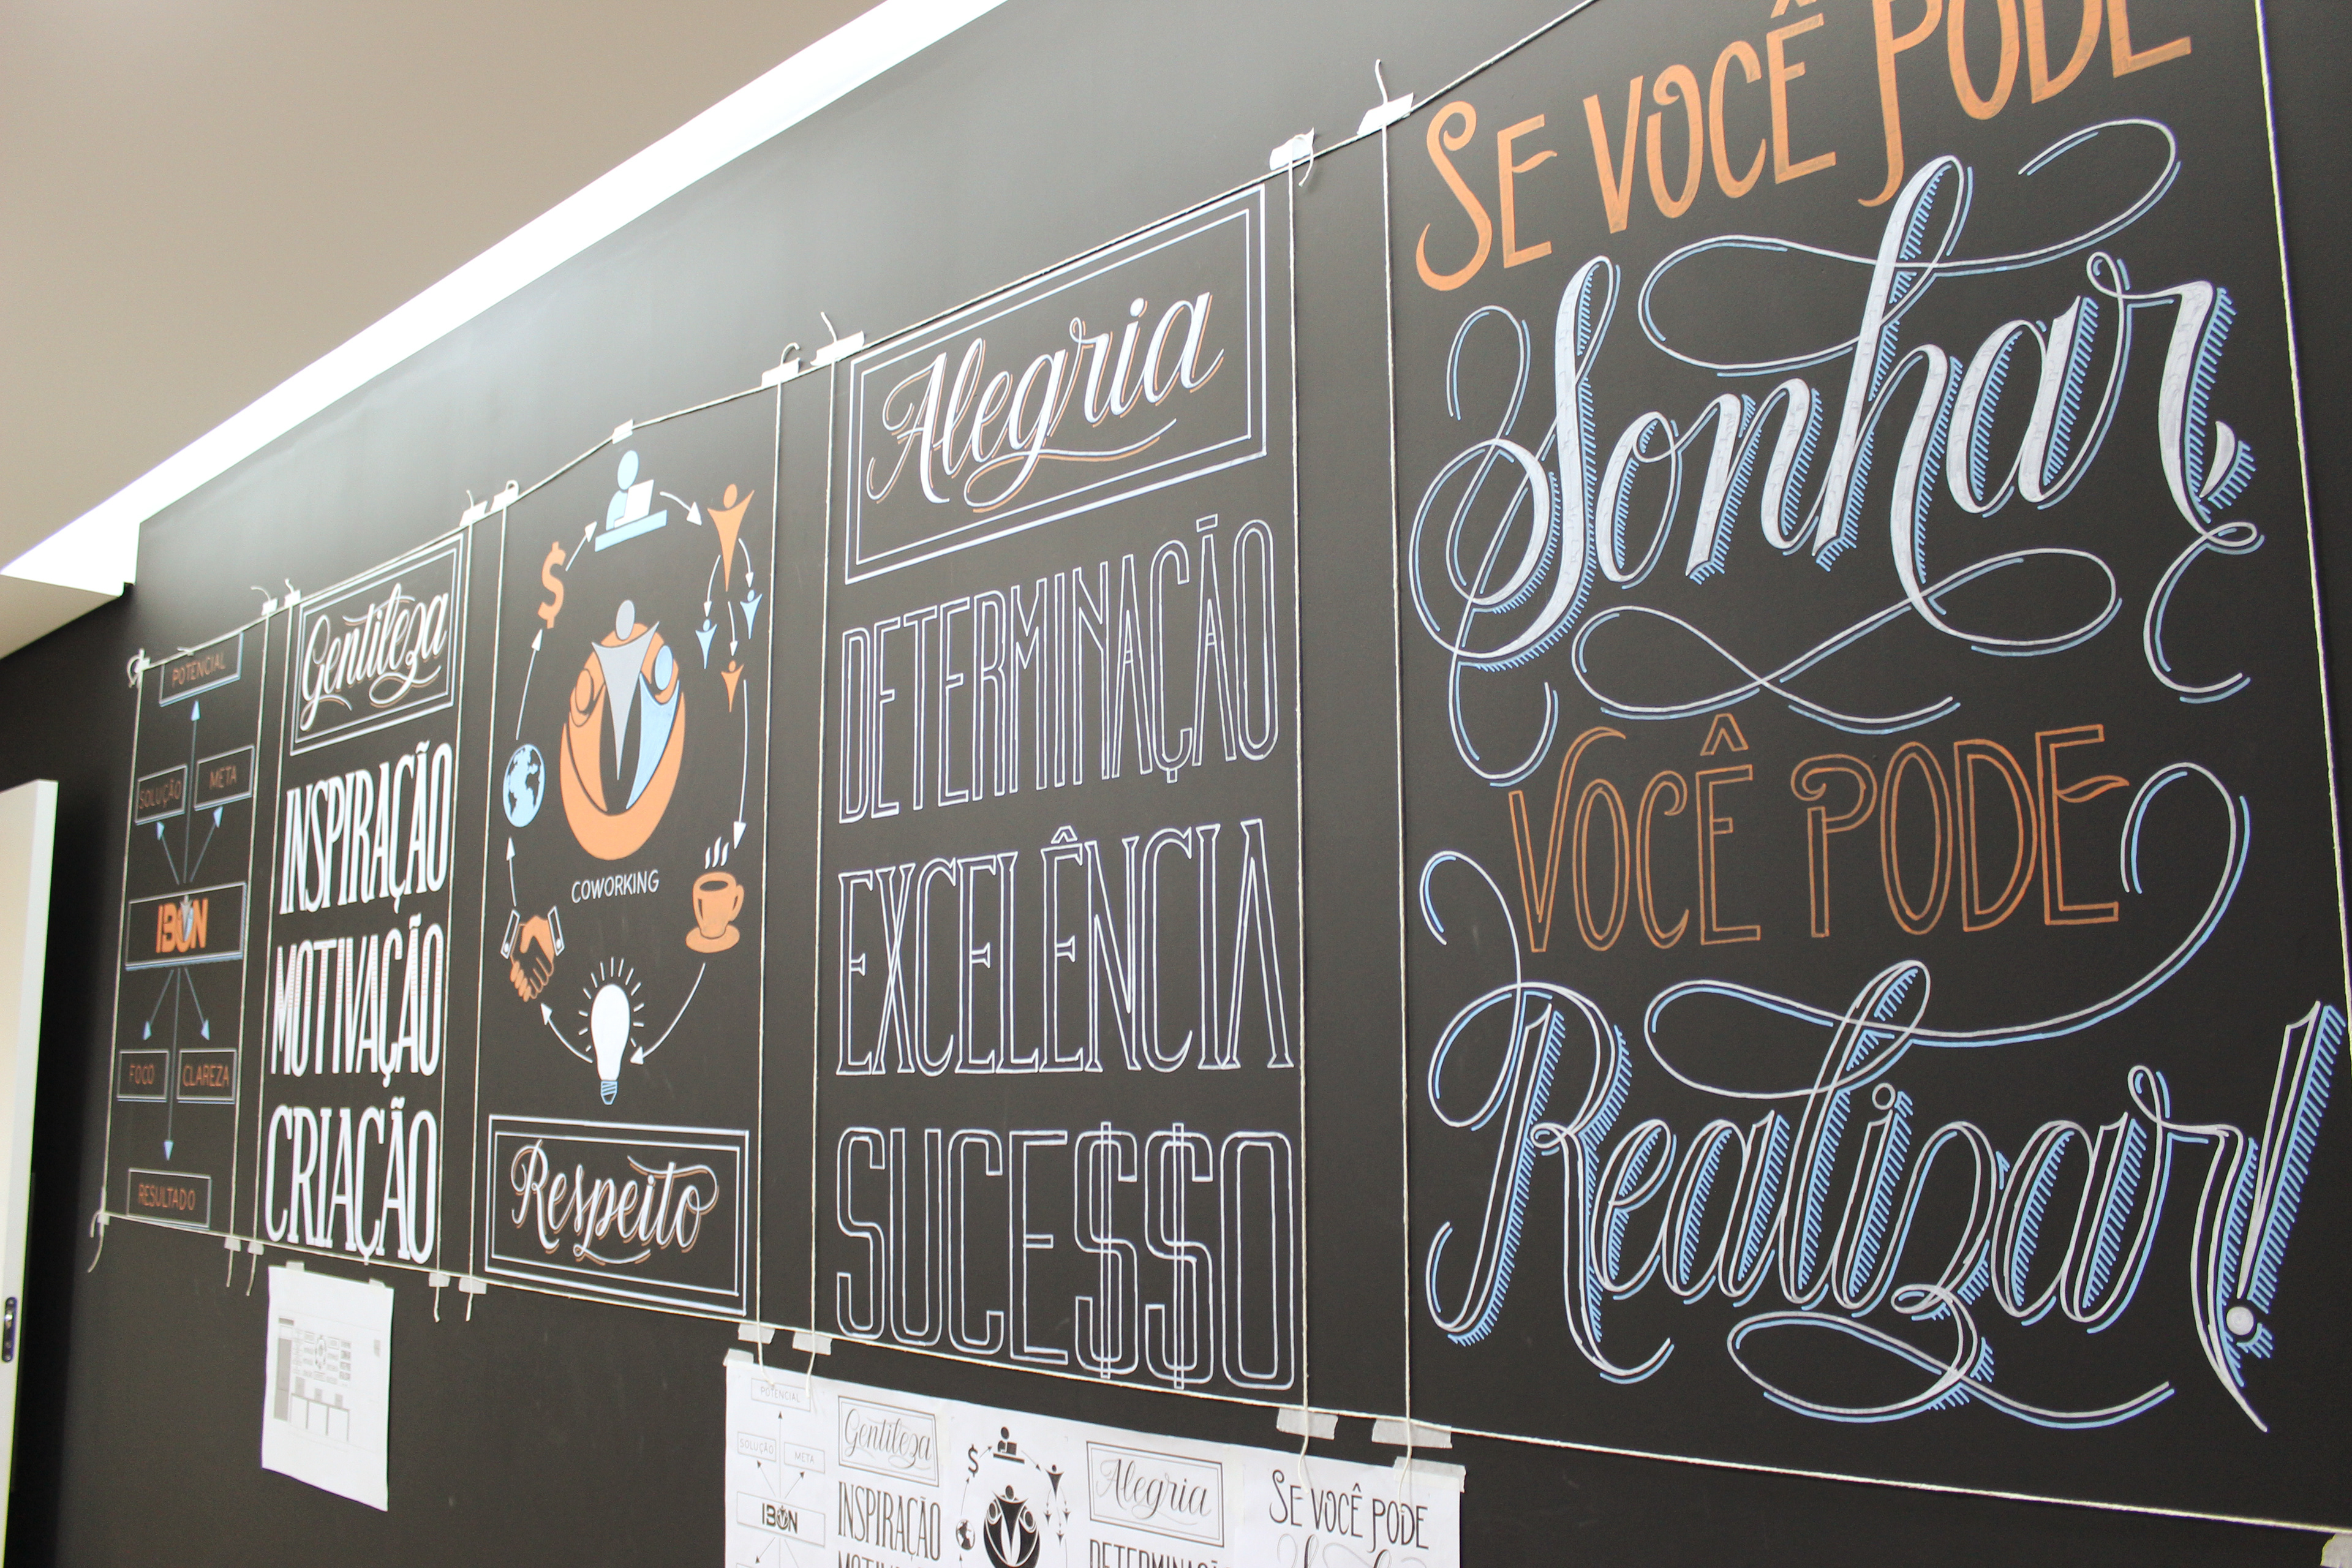 POTENCIAL
SOLUÇÃO
META
IBON
FOCO
CLAREZA
RESULTADO
Gentileza
INSPIRAÇÃO
MOTIVAÇÃO
CRIAÇÃO
$
COWORKING
Respeito
Alegria
DETERMINAÇÃO
EXCELÊNCIA
SUCE$$O
SE VOCÊ PODE
Sonhar,
VOCÊ PODE
Realizar!
POTENCIAL
SOLUÇÃO
META
IBON
Gentileza
INSPIRAÇÃO
$
Alegria
SE VOCÊ PODE